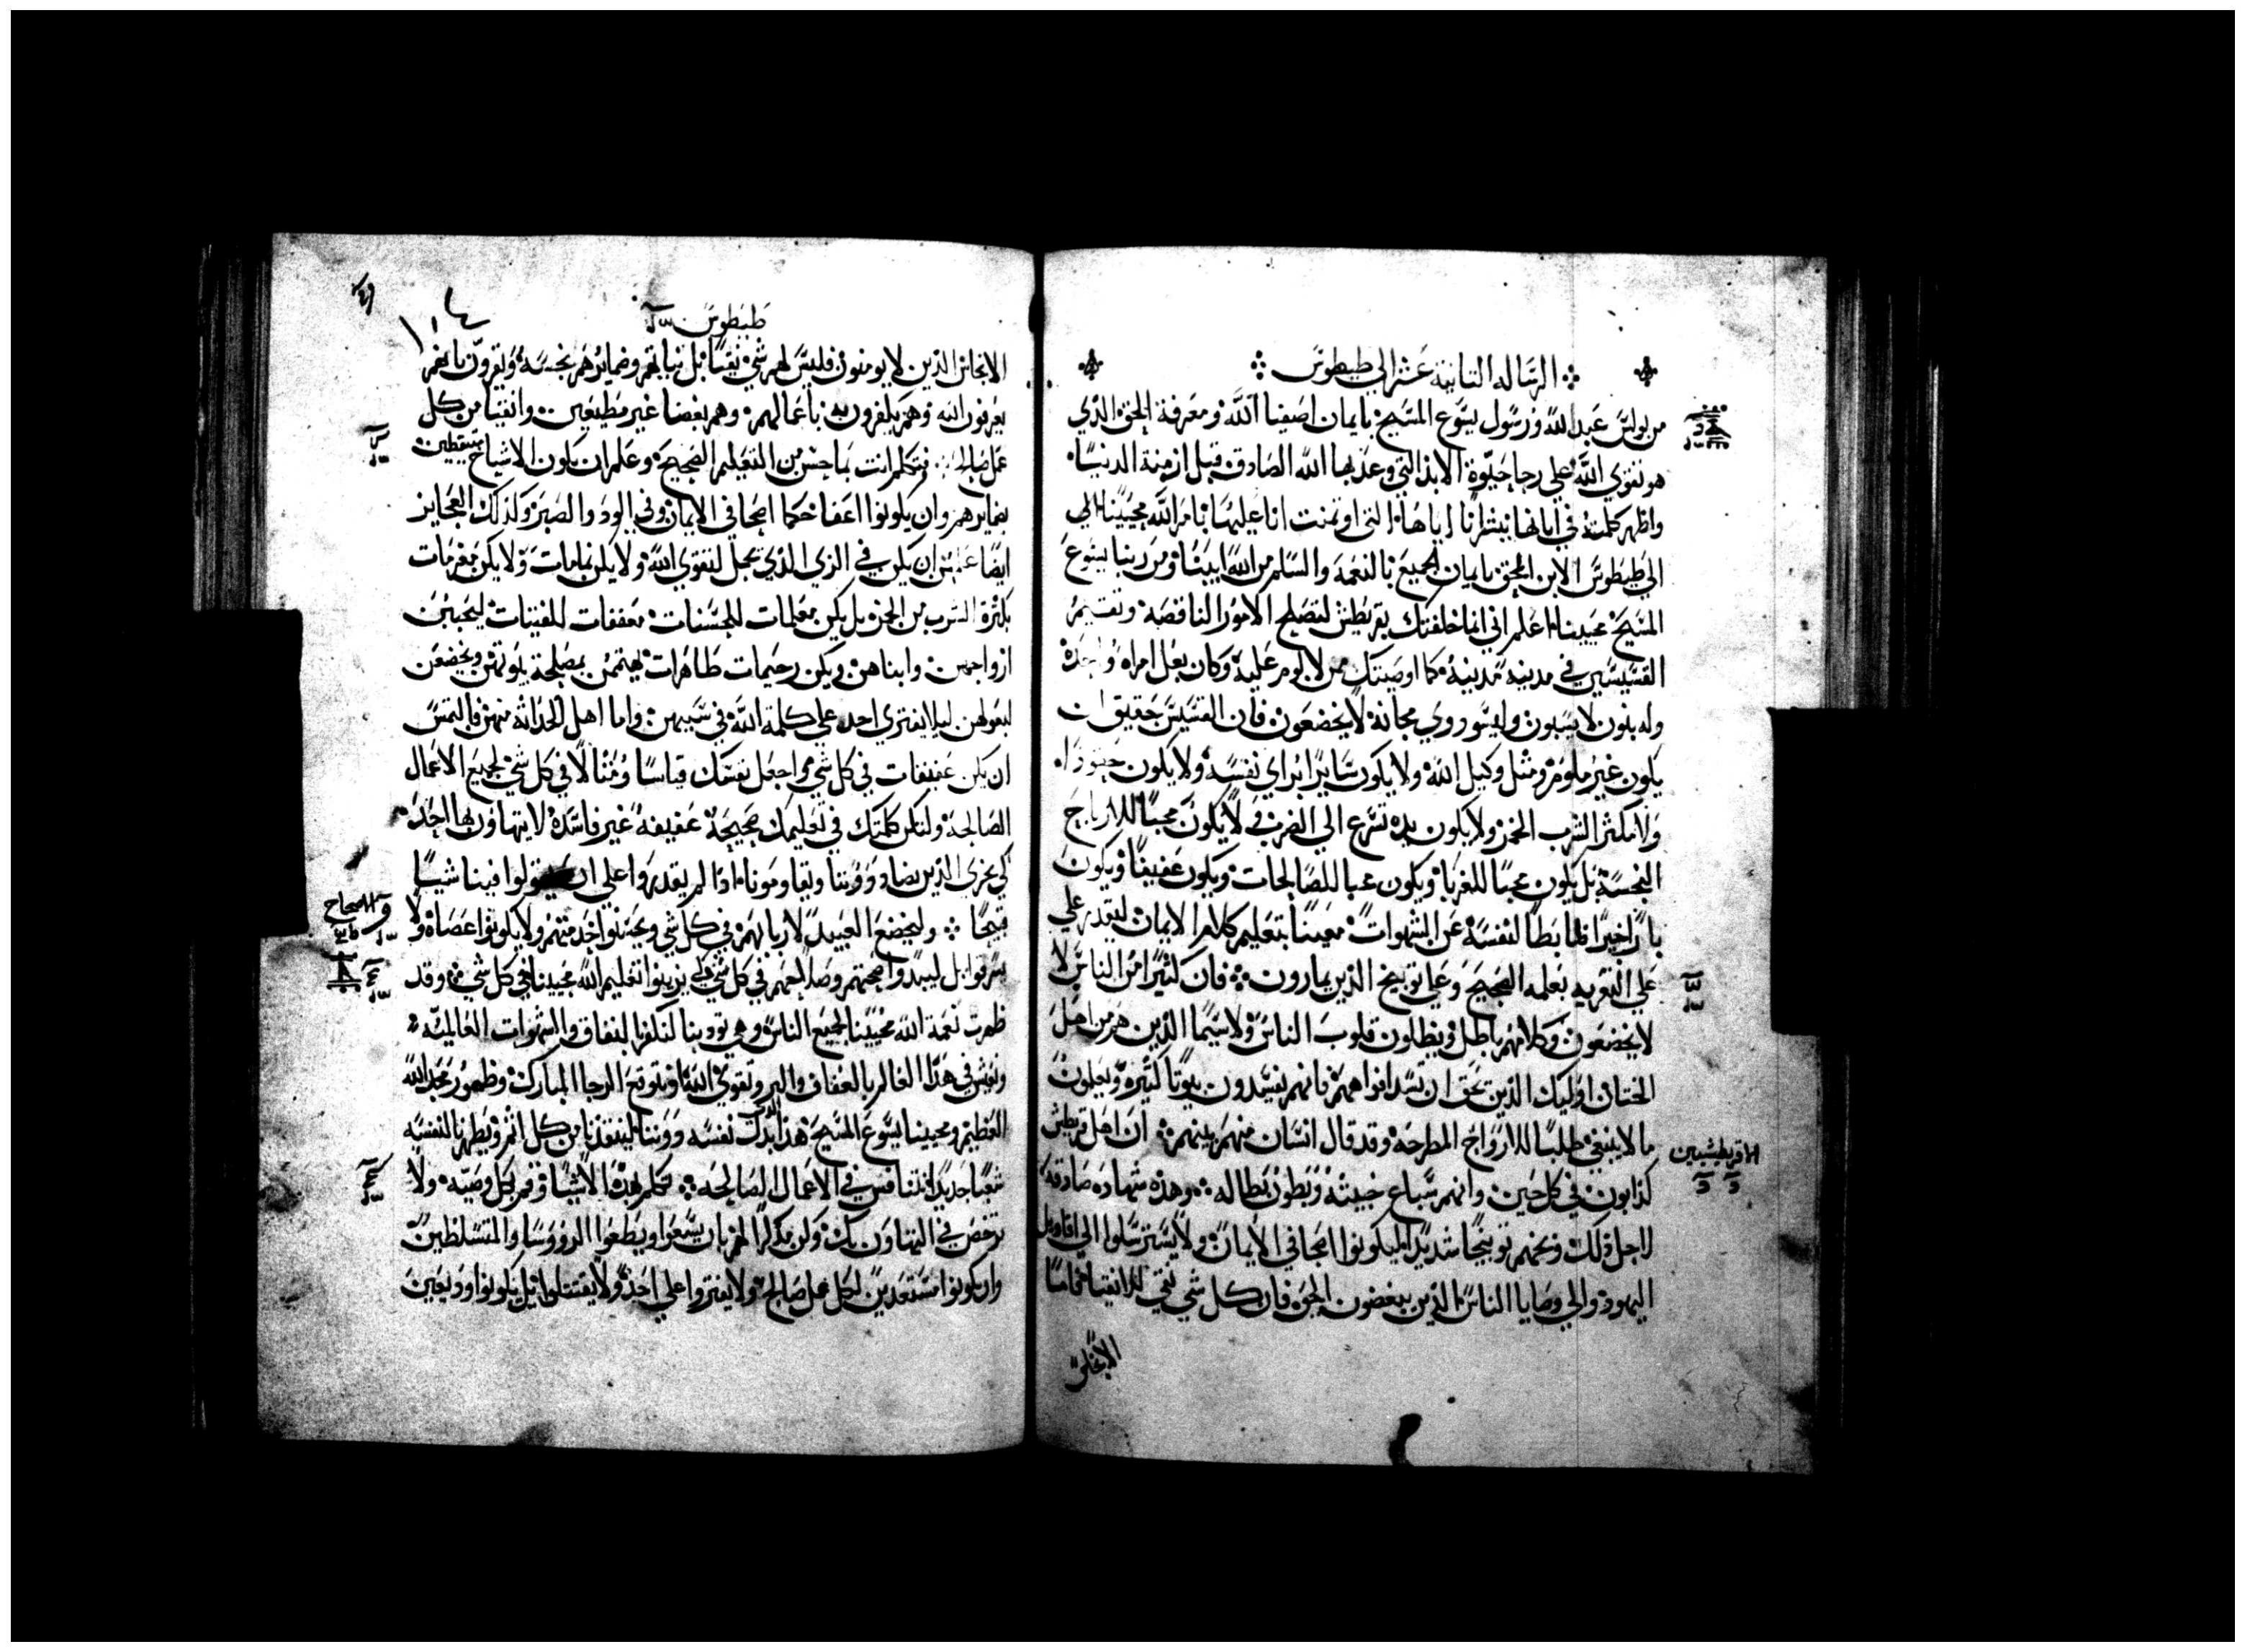 الرساله الثانية عشر الي طيطوس
من بولس عبد الله ورسول يسوع المسيح بايمان اصفيا الله ومعرفة الحق الذي
هو تقوي الله علي رجا حيوة الابد التي وعد بها الله الصادق قبل ازمنة الدنيا
واظهر كلمته في ابانها ببشرانا اياها التي اوتمنت انا عليها بامر الله محيينا الي
الي طيطوس الابن المحق بايمان الجميع النعمة والسلم من الله ابينا ومن ربنا يسوع
المسيح محيينا اعلم اني انما خلفتك بقريطش لتصلح الامور الناقصة وتقيم
القسيسين في مدينة مدينة كما اوصيتك ممن لا لوم عليه وكان بعل امراه واحدة
وله بنون لا يسبون وليسو روي مجانة لا يخضعون فان القسيس حقيق ان
يكون غير ملوم ومثل وكيل الله ولا يكون سايرا براي نفسه ولا يكون حقودا
ولا مكثر الشرب الخمر ولا يكون يده تسرع الي الضرب ولا يكون محبا للارباح
النجسة بل يكون محبا للغربا ويكون محبا للصالحات ويكون عفيفا ويكون
بارا خيرا ضابطا لنفسه عن الشهوات معينا بتعليم كلام الايمان ليقدر علي
علي التعزيه بعلمه الصحيح وعلي توبيخ الذين يمارون فان كثيرا من الناس لا
لا يخضعون وكلامهم باطل ويظلون قلوب الناس ولا سيما الذين هم من اهل
الختان اوليك الذين يحق ان تسد افواههم فانهم يفسدون بيوتا كثيره ويعلمون
ما لا ينبغي طلبا للارواح المطرحة وقد قال انسان منهم بينهم ان اهل قريطش
الاقريطيشيين
كذابون في كل حين وانهم سباع خبيثه وبطون بطاله وهذه شهاده صادقه
لاجل ذلك وبخهم توبيخا شديدا ليكونوا اصحا في الايمان ولا يسترسلوا الي اقاويل
اليهود والي وصايا الناس الذين يبغضون الحق فان كل شي نقي للانقيا فاما
الانجاس
طيطوس
الانجاس الذين لا يومنون فليس لهم شي نقيا بل نياتهم وضمايرهم نجسه ويقرون بانهم
يعرفون الله وهم يكفرون به باعمالهم وهم بغضا غير مطيعين وانقيا من كل
عمل صالح فتكلم انت بما حسن من التعليم الصحيح وعلم ان يكون الاشياخ متيقظين
بضمايرهم وان يكونوا اعفا حكما اصحا في الايمان وفي الود والصبر وكذلك العجايز
ايضا علمهن ان يكن في الزي الذي يجمل لتقوي الله ولا يكن نمامات ولا يكن مغرمات
بكثرة الشرب من الخمر بل يكن معلمات للحسنات معففات للفتيات ليحببن
ازواجهن وابناهن ويكن رحيمات طاهرات يهتمن بمصلحة بيوتهن ويخضعن
لبعولهن ليلا يفتري احد علي كلمة الله في سببهن واما اهل الحداثه منهم فالتمس
ان يكن عفيفات في كل شي واجعل نفسك قياسا ومثالا في كل شي لجميع الاعمال
الصالحة ولتكن كلمتك في تعليمك صحيحة عفيفة غير فاسدة لا يتهاون بها احد
كي يخزي الذين يضادوونا ويقاومونا اذا لم يقدروا علي ان يقولوا فينا شيا
قبيحا وليخضع العبيد لاربابهم في كل شي ويحسنوا خدمتهم ولا يكونوا عصاه ولا
الاصحاح
يسرقوا بل ليبدوا صحتهم وصلاحهم في كل شي لكي يزينوا تعليم الله محيينا في كل شي وقد
ظهرت نعمة الله محيينا لجميع الناس وهي تودبنا لنكفر بالنفاق والشهوات العالمية
ونعيش في هذا العالم بالعفاف والبر وتقوي الله ونتوقع الرجا المبارك وظهور مجد الله
العظيم ومحيينا يسوع المسيح هذا الذي بذل نفسه دوننا لينقذنا من كل اثم ويطهرنا لنفسه
شعبا جديدا نتنافس في الاعمال الصالحه تكلم بهذه الاشيا وقم بكل وصيه ولا
ترخص في التهاون بك وكن مذكرا لهم بان يسمعوا ويطعوا الرووسا والمتسلطين
وان يكونوا مستعدين لكل عمل صالح ولا يفتروا علي احد ولا يقتتلوا بل يكونوا وديعين